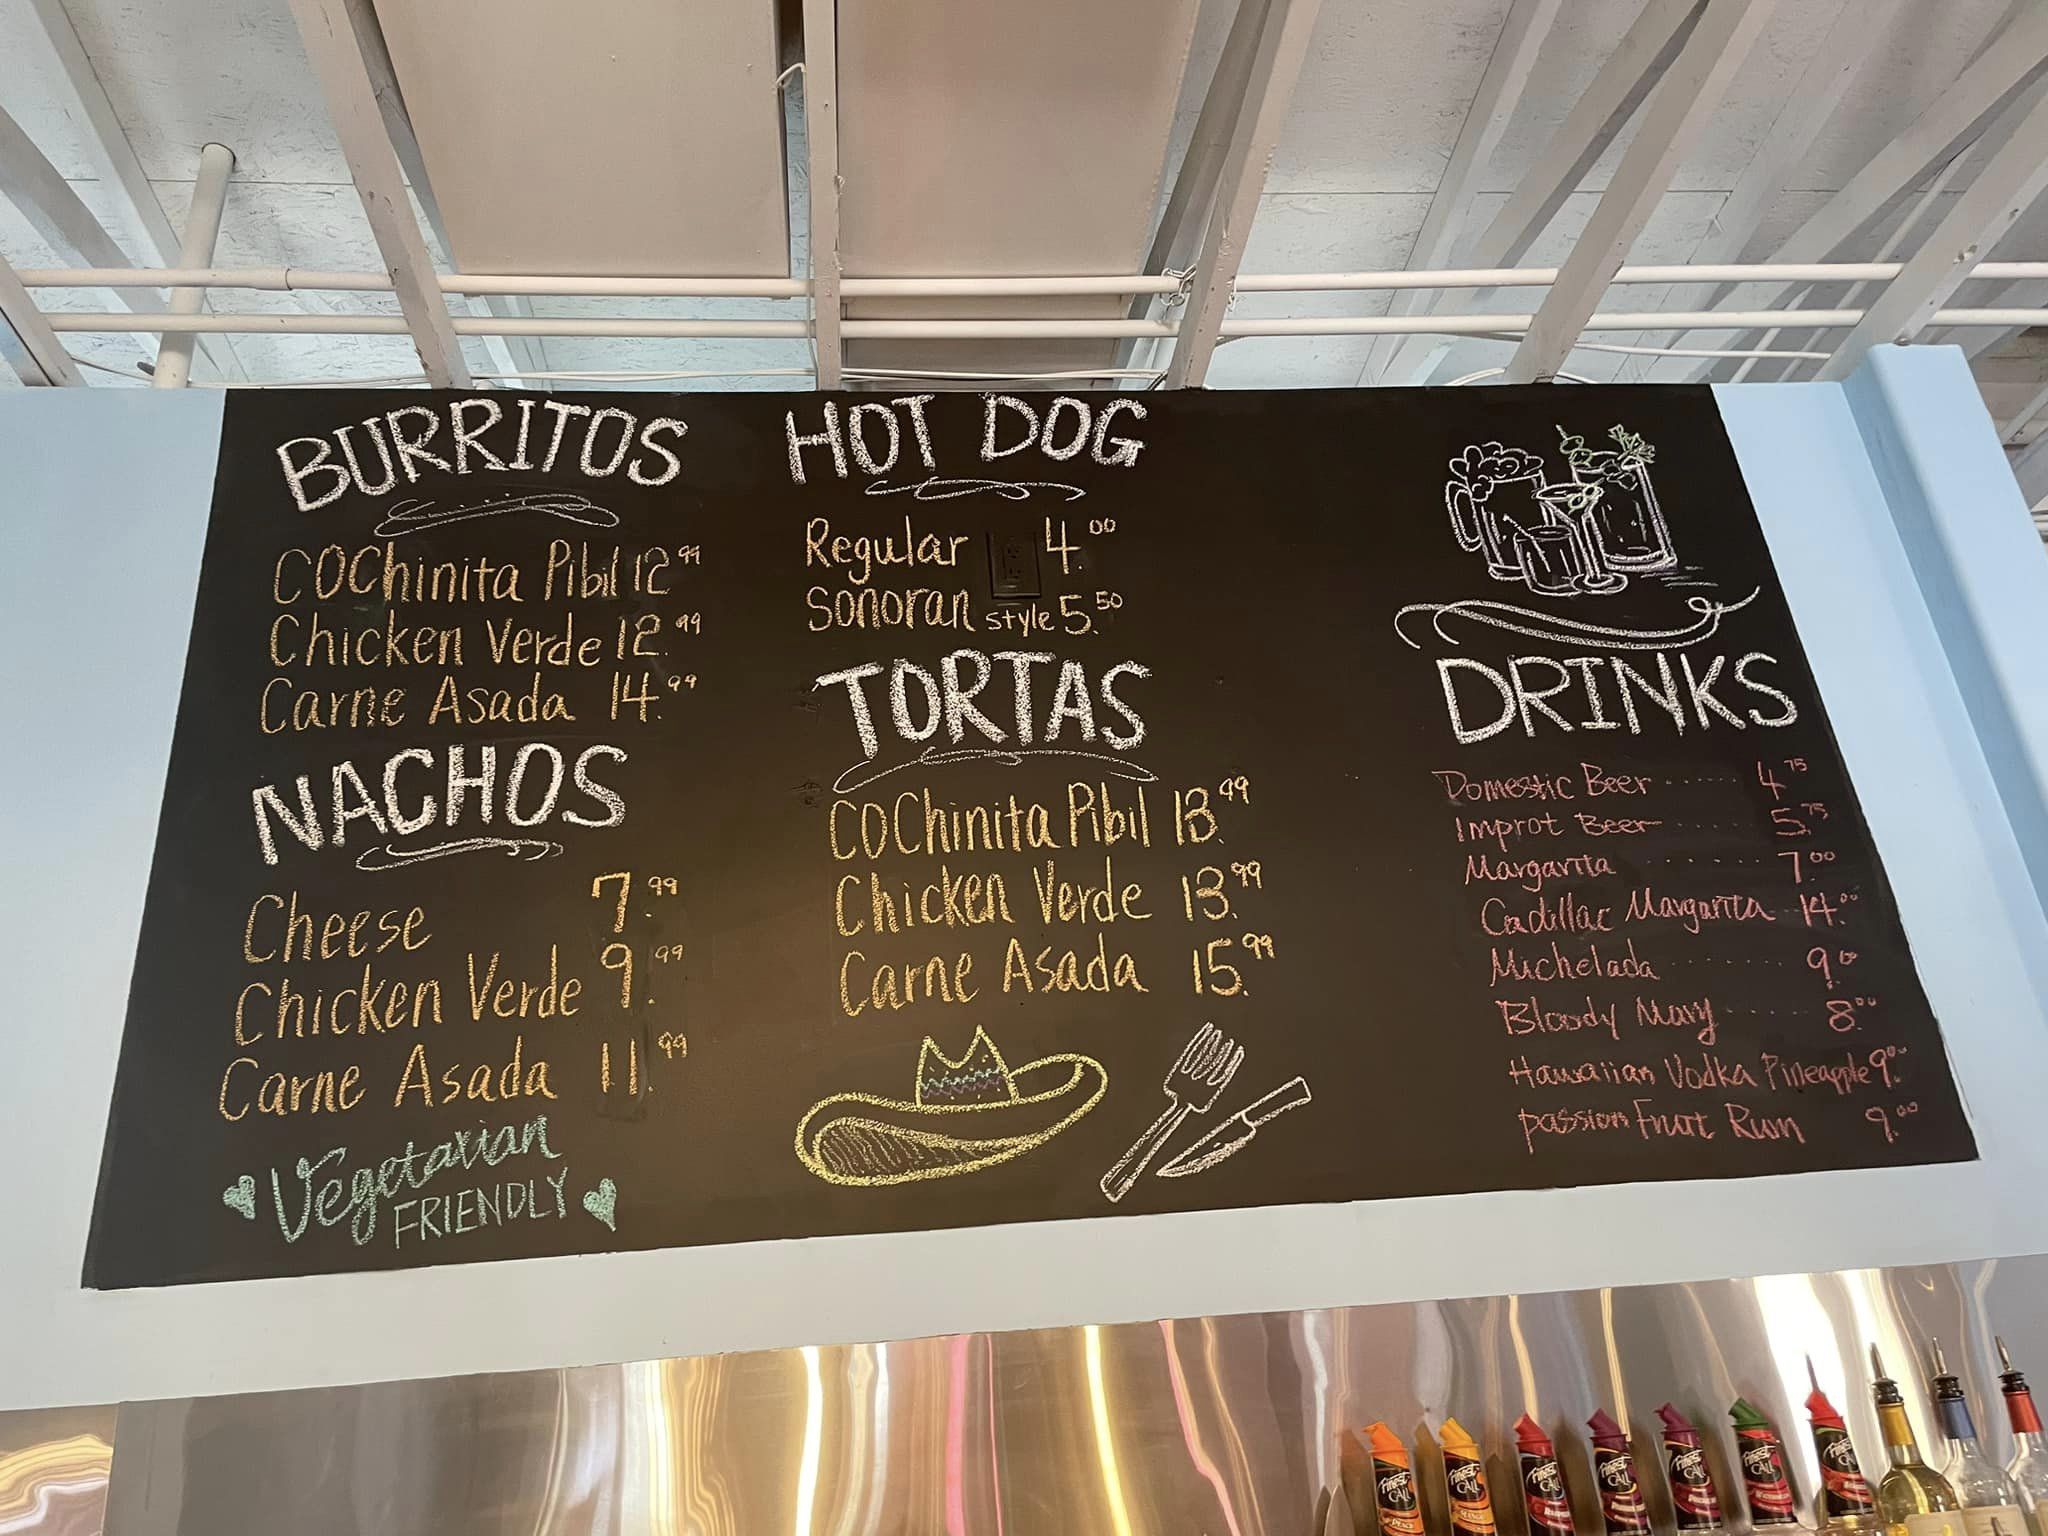 BURRITOS
COChinita Pibil 12.99
Chicken Verde 12.99
Carne Asada 14.99
NACHOS
Cheese 7.99
Chicken Verde 9.99
Carne Asada 11.99
Vegetarian
FRIENDLY
HOT DOG
Regular 4.00
Sonoran style 5.50
TORTAS
COChinita Pibil 13.99
Chicken Verde 13.99
Carne Asada 15.99
DRINKS
Domestic Beer ...... 4.75
Improt Beer ..... 5.75
Margarita ....... 7.00
Cadillac Margarita .. 14.00
Michelada ........ 9.00
Bloody Mary ...... 8.00
Hawaiian Vodka Pineapple 9.00
passion Fruit Rum 9.00
Finest CALL
Finest CALL
Finest CALL
Finest CALL
Finest CALL
Finest CALL
Finest CALL